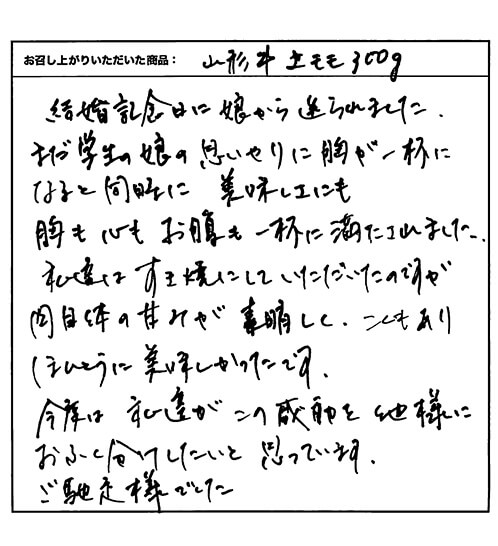 お召し上がりいただいた商品： 山形牛 立モモ 300g
結婚記念日に娘から送られました.
まだ学生の娘の思いやりに胸が一杯に
なると同時に 美味しさにも
胸も心もお腹も一杯に満たされました.
私達はすき焼にしていただいたのですが
肉自体の甘みが素晴しく、こくもあり
ほんとうに美味しかったです.
今度は私達がこの感動を他様に
おふく分けしたいと思っています.
ご馳走様でした